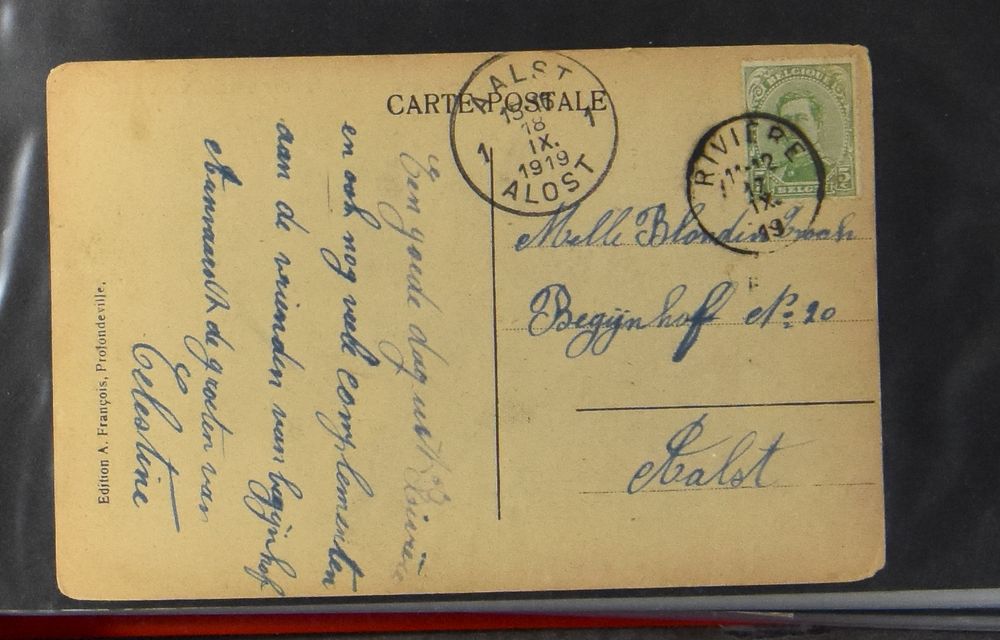 CARTE POSTALE
AALST
1 1
18
IX.
1919
ALOST
BELGIQUE
5 5
BELGI
RIVIÈRE
11-12
17
IX.
19
Een goede dag uit Rivière
en ook nog veele complementen
aan de vrienden van begijnhof
Aanvaardt de groeten van
Celestine
Melle Blondina
Begijnhoff No 20
Aalst
Edition A. François, Profondeville.